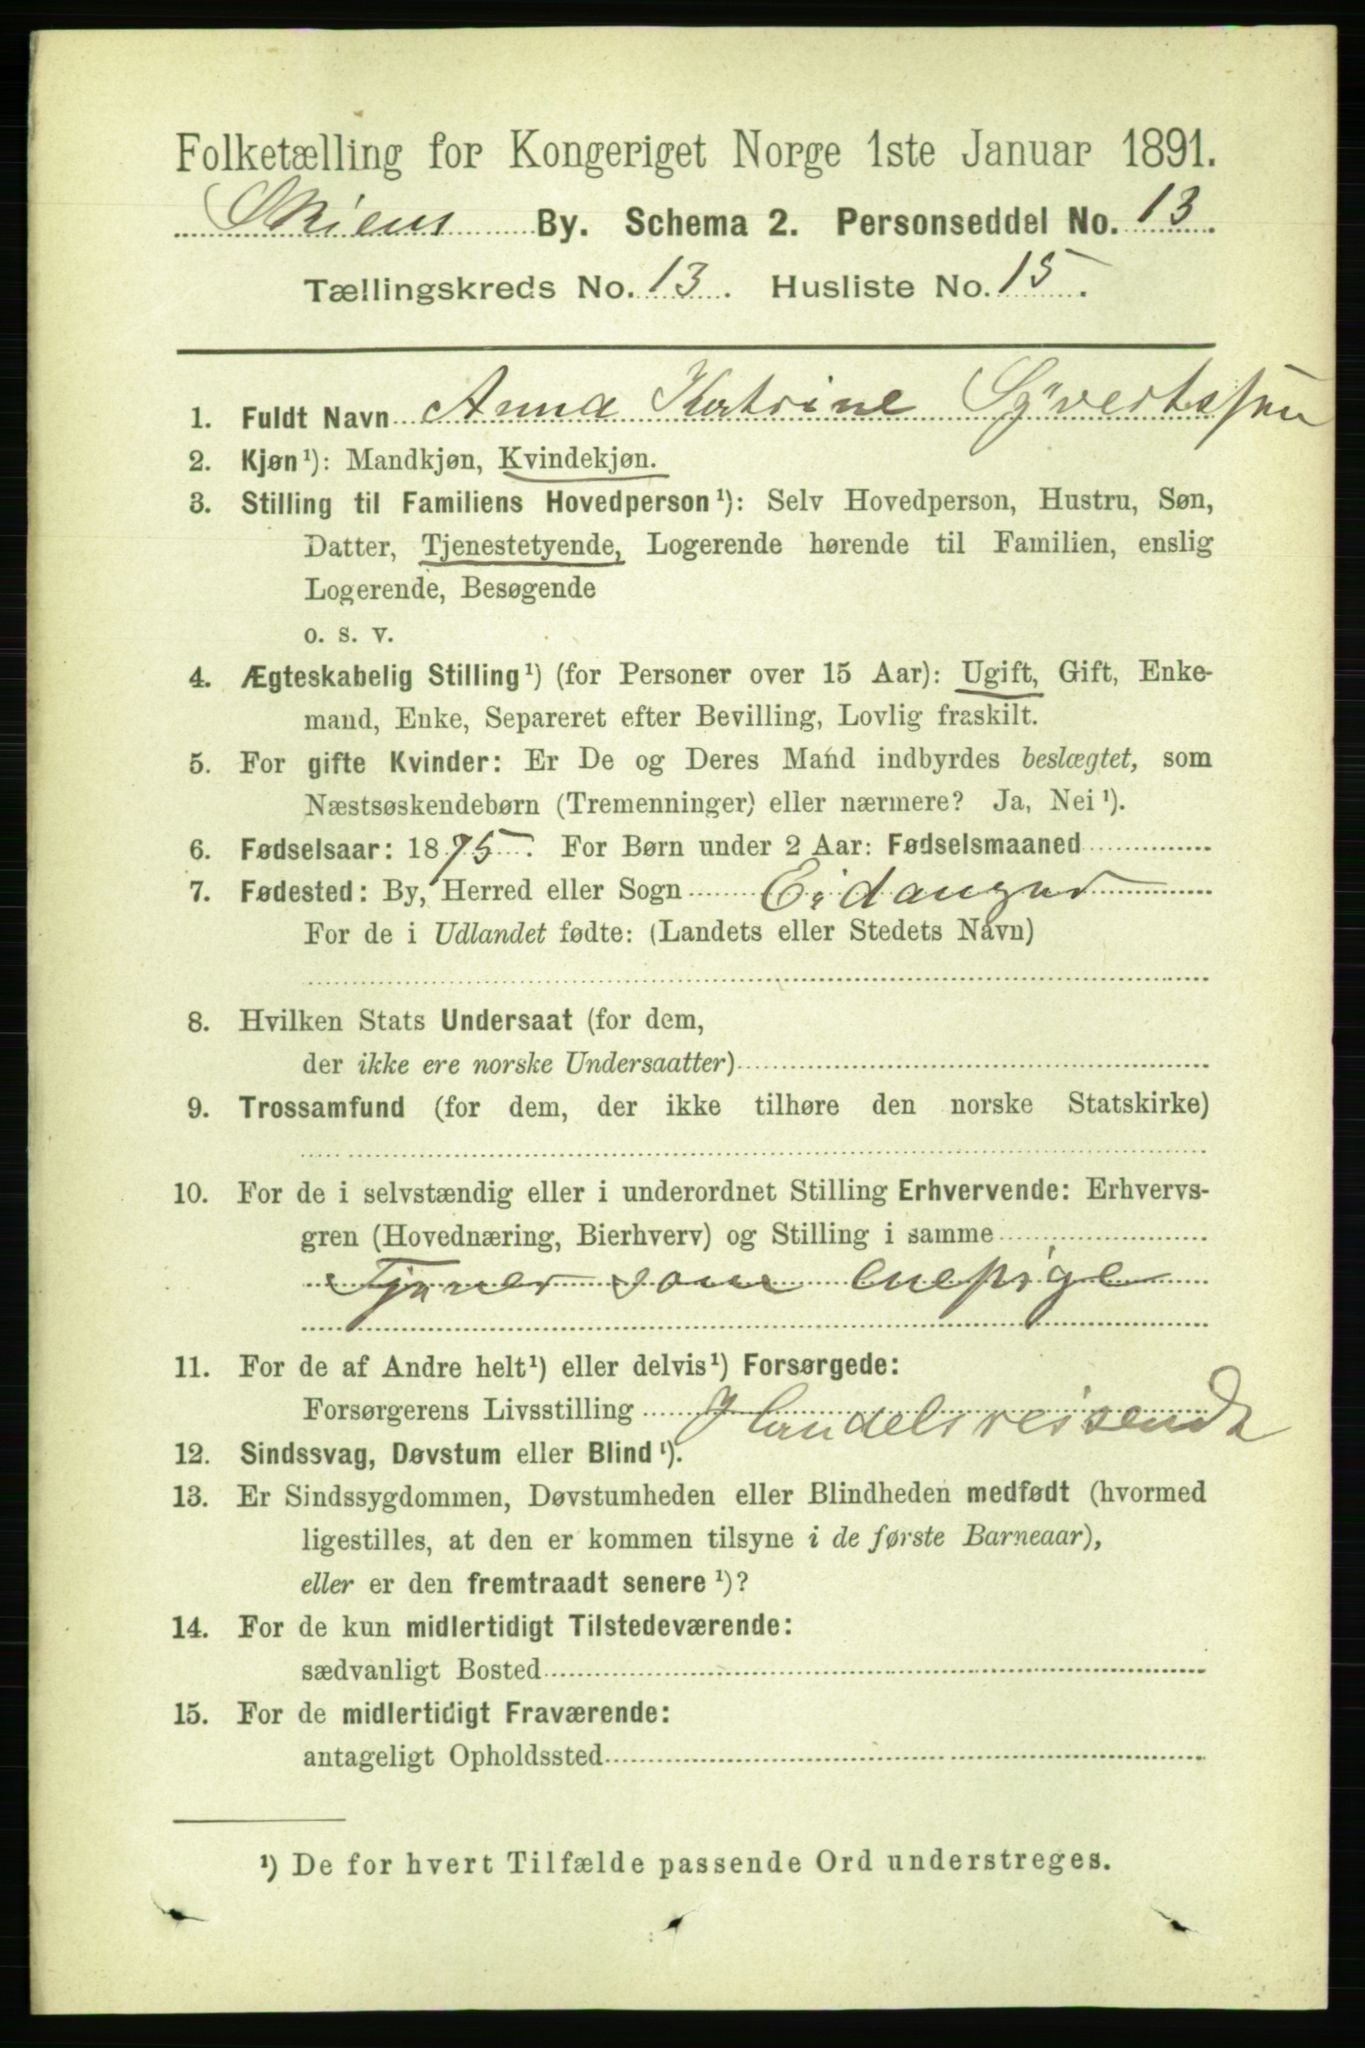 Folketælling for Kongeriget Norge 1ste Januar 1891.
Skiens By. Schema 2. Personseddel No. 13.
Tællingskreds No. 13. Husliste No. 15.
1. Fuldt Navn Anna Katrine Syvertssen
2. Kjøn¹): Mandkjøn, Kvindekjøn.
3. Stilling til Familiens Hovedperson¹): Selv Hovedperson, Hustru, Søn,
Datter, Tjenestetyende, Logerende hørende til Familien, enslig
Logerende, Besøgende
o. s. v.
4. Ægteskabelig Stilling¹) (for Personer over 15 Aar): Ugift, Gift, Enke-
mand, Enke, Separeret efter Bevilling, Lovlig fraskilt.
5. For gifte Kvinder: Er De og Deres Mand indbyrdes beslægtet, som
Næstsøskendebørn (Tremenninger) eller nærmere? Ja, Nei¹).
6. Fødselsaar: 1875. For Børn under 2 Aar: Fødselsmaaned
7. Fødested: By, Herred eller Sogn Eidanger
For de i Udlandet fødte: (Landets eller Stedets Navn)
8. Hvilken Stats Undersaat (for dem,
der ikke ere norske Undersaatter)
9. Trossamfund (for dem, der ikke tilhøre den norske Statskirke)
10. For de i selvstændig eller i underordnet Stilling Erhvervende: Erhvervs-
gren (Hovednæring, Bierhverv) og Stilling i samme
Tjener som enepige
11. For de af Andre helt¹) eller delvis¹) Forsørgede:
Forsørgerens Livsstilling Handelsreisende
12. Sindssvag, Døvstum eller Blind¹).
13. Er Sindssygdommen, Døvstumheden eller Blindheden medfødt (hvormed
ligestilles, at den er kommen tilsyne i de første Barneaar),
eller er den fremtraadt senere¹)?
14. For de kun midlertidigt Tilstedeværende:
sædvanligt Bosted
15. For de midlertidigt Fraværende:
antageligt Opholdssted
¹) De for hvert Tilfælde passende Ord understreges.